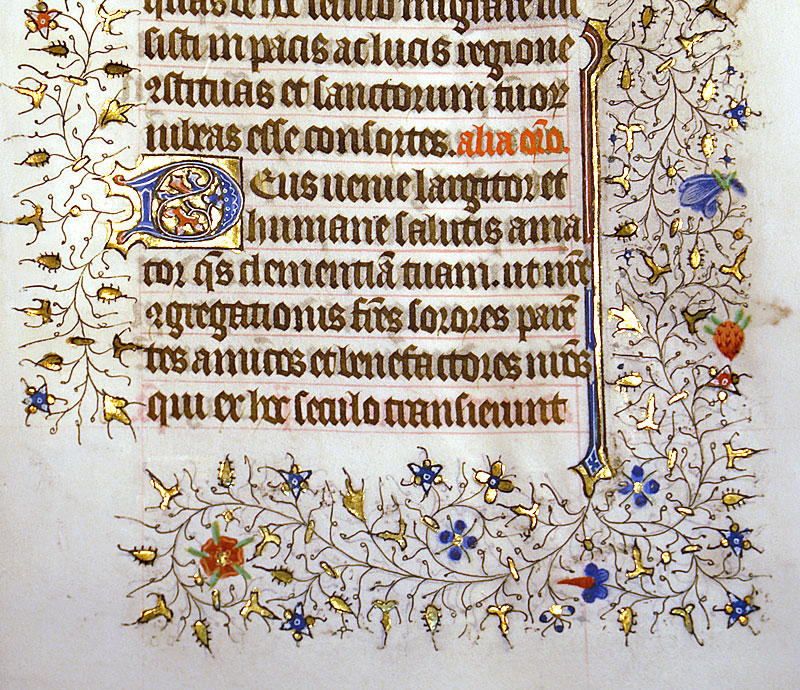 quas de hoc seculo migrare ius
sisti in pacis ac lucis regione
ꝯstituas et sanctorum tuoꝝ
iubeas esse consortes. alia oro.
Deus uenie largitor et
humane salutis ama
tor q̄s clementiā tuam. ut nr̄e
ꝯgregationis fr̄es sorores parē
tes amicos et benefactores nr̄os
qui ex hoc seculo transierunt